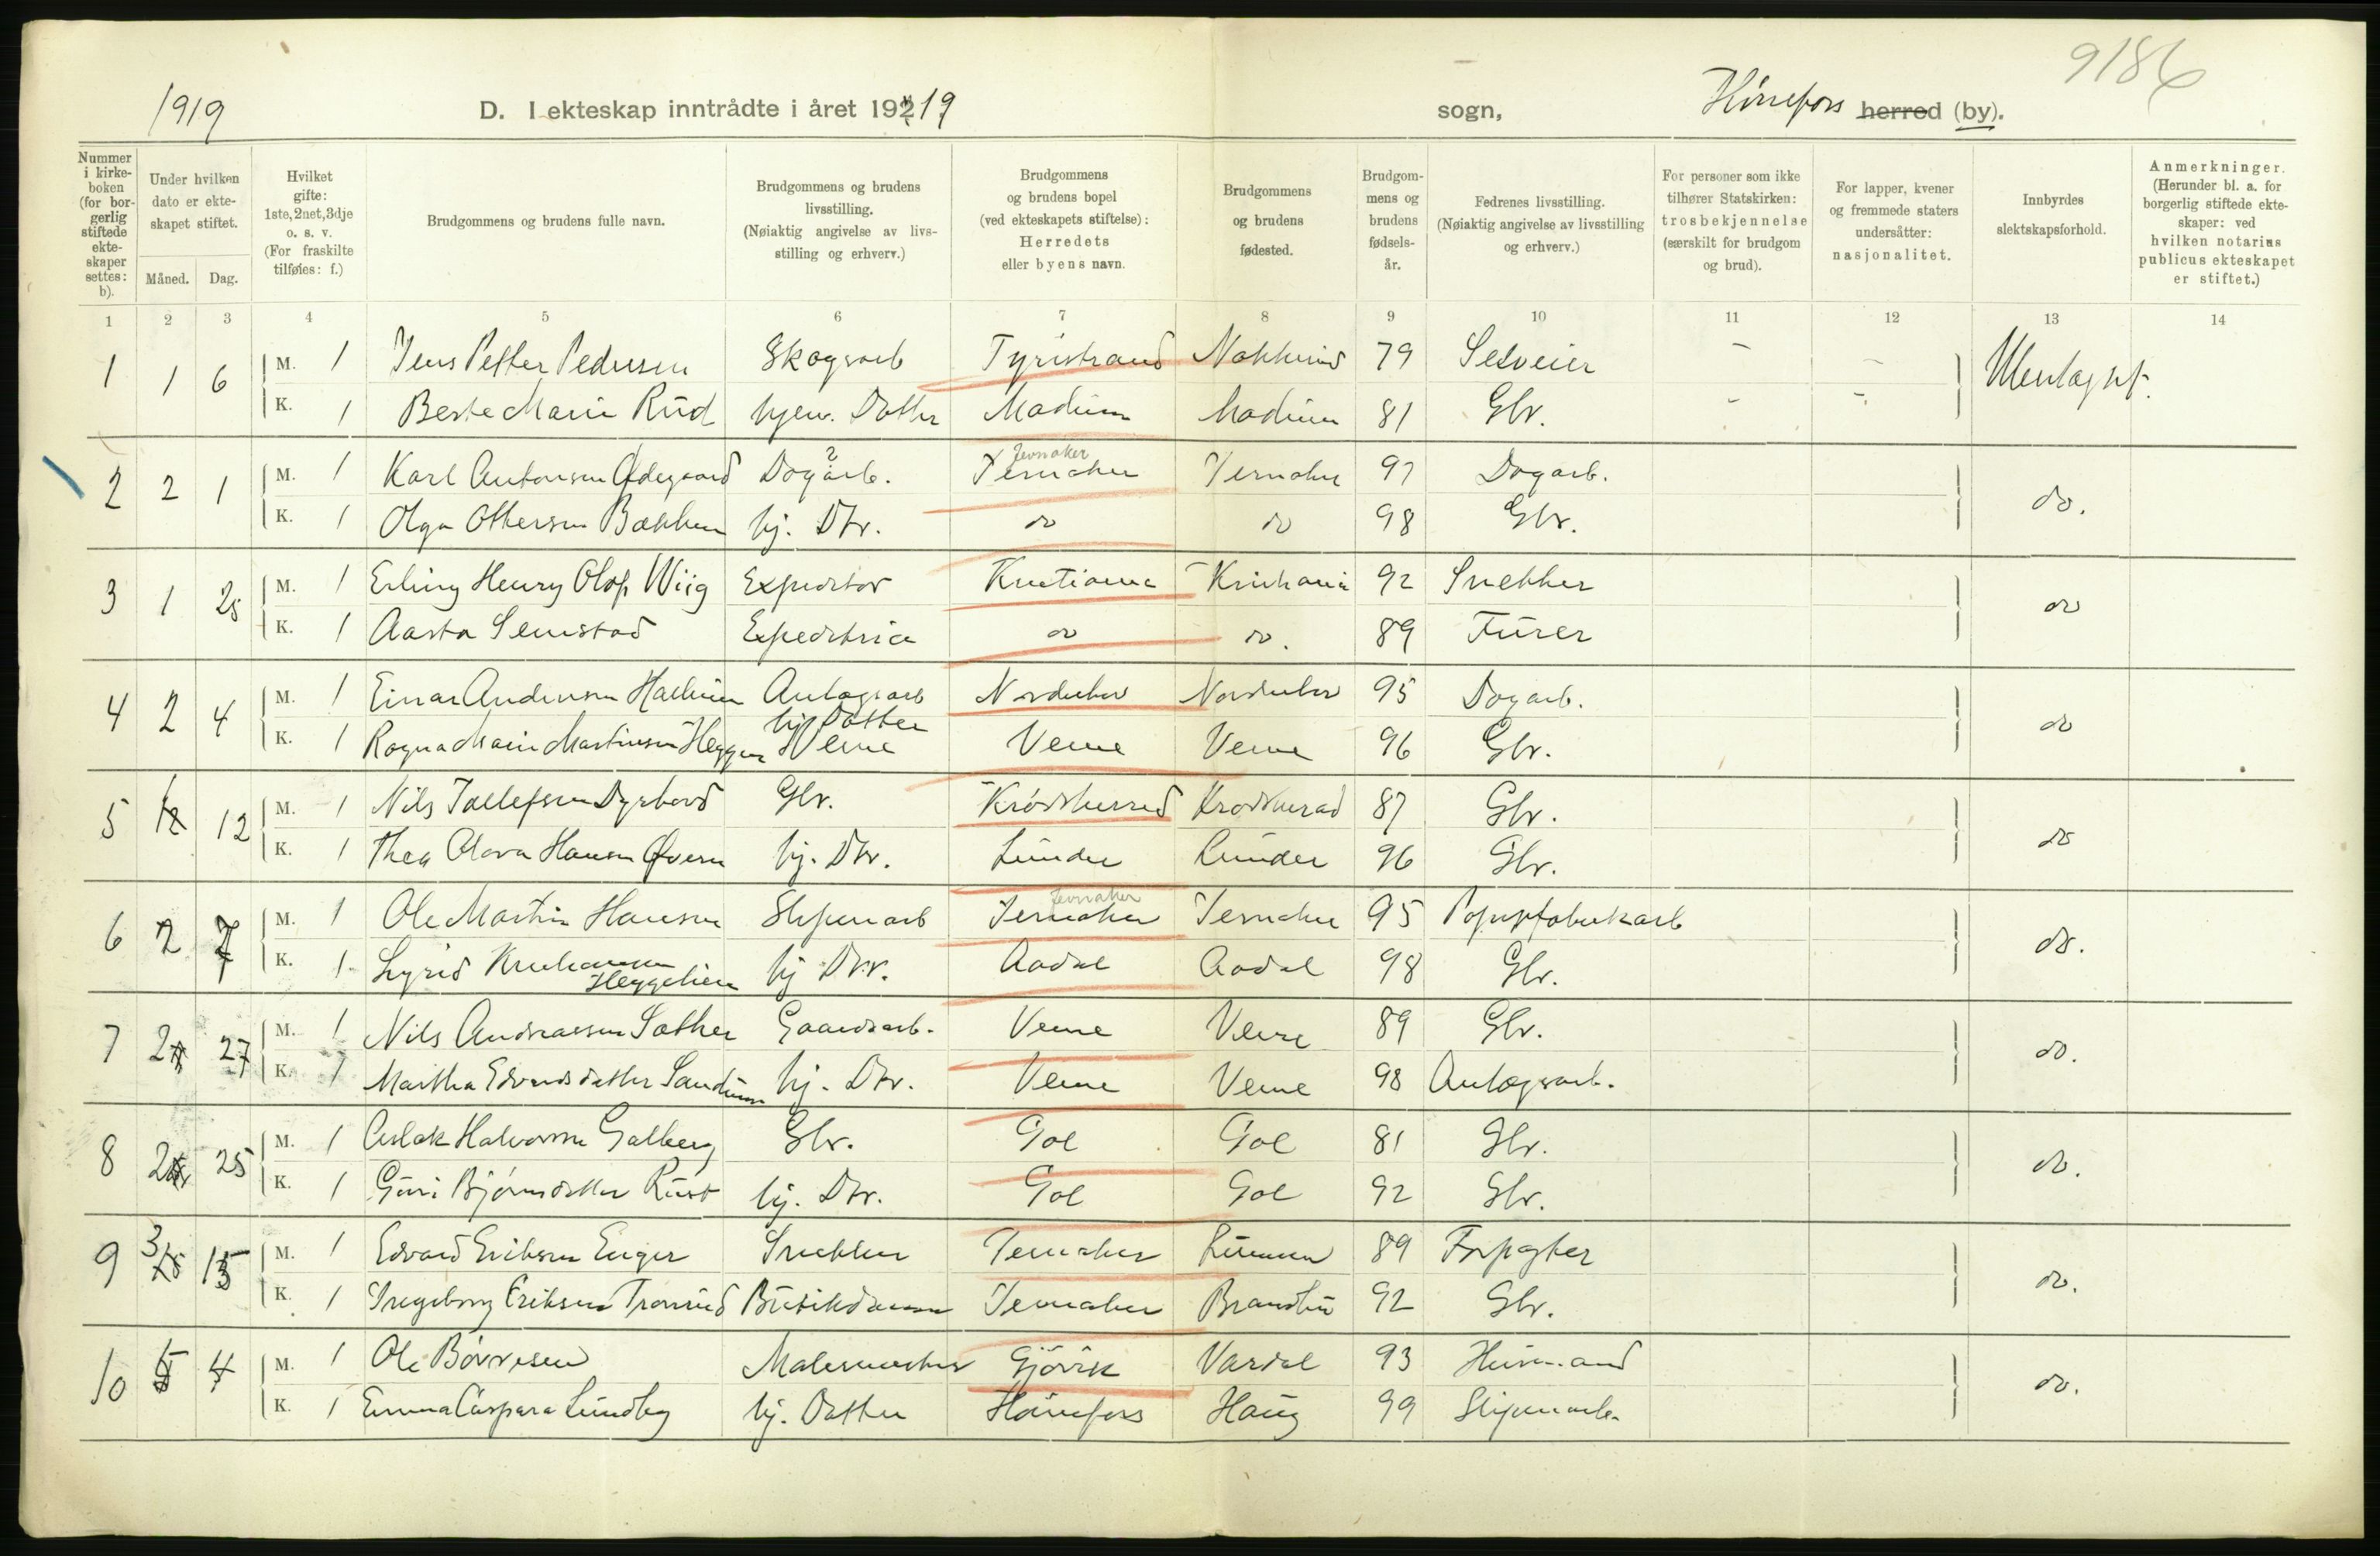 9186
1919 D. I ekteskap inntrådte i året 192 19 sogn, Hönefoss herred (by).
Nummer i kirkeboken (for borgerlig stiftede ekteskaper settes: b).
Under hvilken dato er ekteskapet stiftet.
Måned. Dag.
Hvilket gifte: 1ste, 2net, 3dje o. s. v. (For fraskilte tilføies: f.)
Brudgommens og brudens fulle navn.
Brudgommens og brudens livsstilling. (Nøiaktig angivelse av livsstilling og erhverv.)
Brudgommens og brudens bopel (ved ekteskapets stiftelse): Herredets eller byens navn.
Brudgommens og brudens fødested.
Brudgommens og brudens fødselsår.
Fedrenes livsstilling. (Nøiaktig angivelse av livsstilling og erhverv.)
For personer som ikke tilhører Statskirken: trosbekjennelse (særskilt for brudgom og brud).
For lapper, kvener og fremmede staters undersåtter: nasjonalitet.
Innbyrdes slektskapsforhold.
Anmerkninger. (Herunder bl. a. for borgerlig stiftede ekteskaper: ved hvilken notarius publicus ekteskapet er stiftet.)
1 2 3 4 5 6 7 8 9 10 11 12 13 14
1 1 6 M. 1 Jens Petter Pedersen Skogsarb Tyristrand Nakkerud 79 Selveier - -
K. 1 Berte Marie Rud hjem. Datter Modum Modum 81 Gbr. - -
2 2 1 M. 1 Karl Antonsen Ødegaard Dagarb. Jevnaker Jevnaker 97 Dagarb. do.
K. 1 Olga Ottersen Bækken hj. Dtr. do do 98 Gbr.
3 1 25 M. 1 Erling Henry Olaf Wiig Expeditør Kristiania Kristiania 92 Snekker do
K. 1 Aasta Semstad Expeditrice do do. 89 Furer
4 2 4 M. 1 Einar Andersen Anlægsarb Norderhov Norderhov 95 Dagarb. do
K. 1 Ragna Marie Martinsen Heggen hj. Datter Veme Veme 96 Gbr.
5 12 M. 1 Nils Tollefsen Gbr. Krødsherred Krødsherad 87 Gbr. do
K. 1 Thea Olava Hansen Øvern hj. Dtr. Lunder Lunder 96 Gbr.
6 2 7 M. 1 Ole Martin Hansen Sliperiarb Jevnaker Jevnaker 95 Papirfabrikarb do.
K. 1 Sigrid Kristiansen Heggelien hj Dtr. Aadal Aadal 98 Gbr.
7 2 27 M. 1 Nils Andreassen Sæther Gaardsarb. Veme Veme 89 Gbr. do.
K. 1 Martha Edvardsdatter Sandum hj. Dtr. Veme Veme 98 Anlægsarb.
8 2 25 M. 1 Aslak Halvorsen Galberg Gbr. Gol Gol 81 Gbr. do.
K. 1 Guri Bjørnsdatter Rust hj. Dtr. Gol Gol 92 Gbr.
9 3 15 M. 1 Edvard Eriksen Enger Snekker Jevnaker Lunner 89 Forpagter do.
K. 1 Ingeborg Eriksen Tronrud Butikdame Jevnaker Brandbu 92 Gbr.
10 5 4 M. 1 Ole Børresen Malermester Gjövik Vardal 93 Husmand do.
K. 1 Emma Caspara Lundby hj. Datter Hönefoss Haug 99 Sliperiarb.